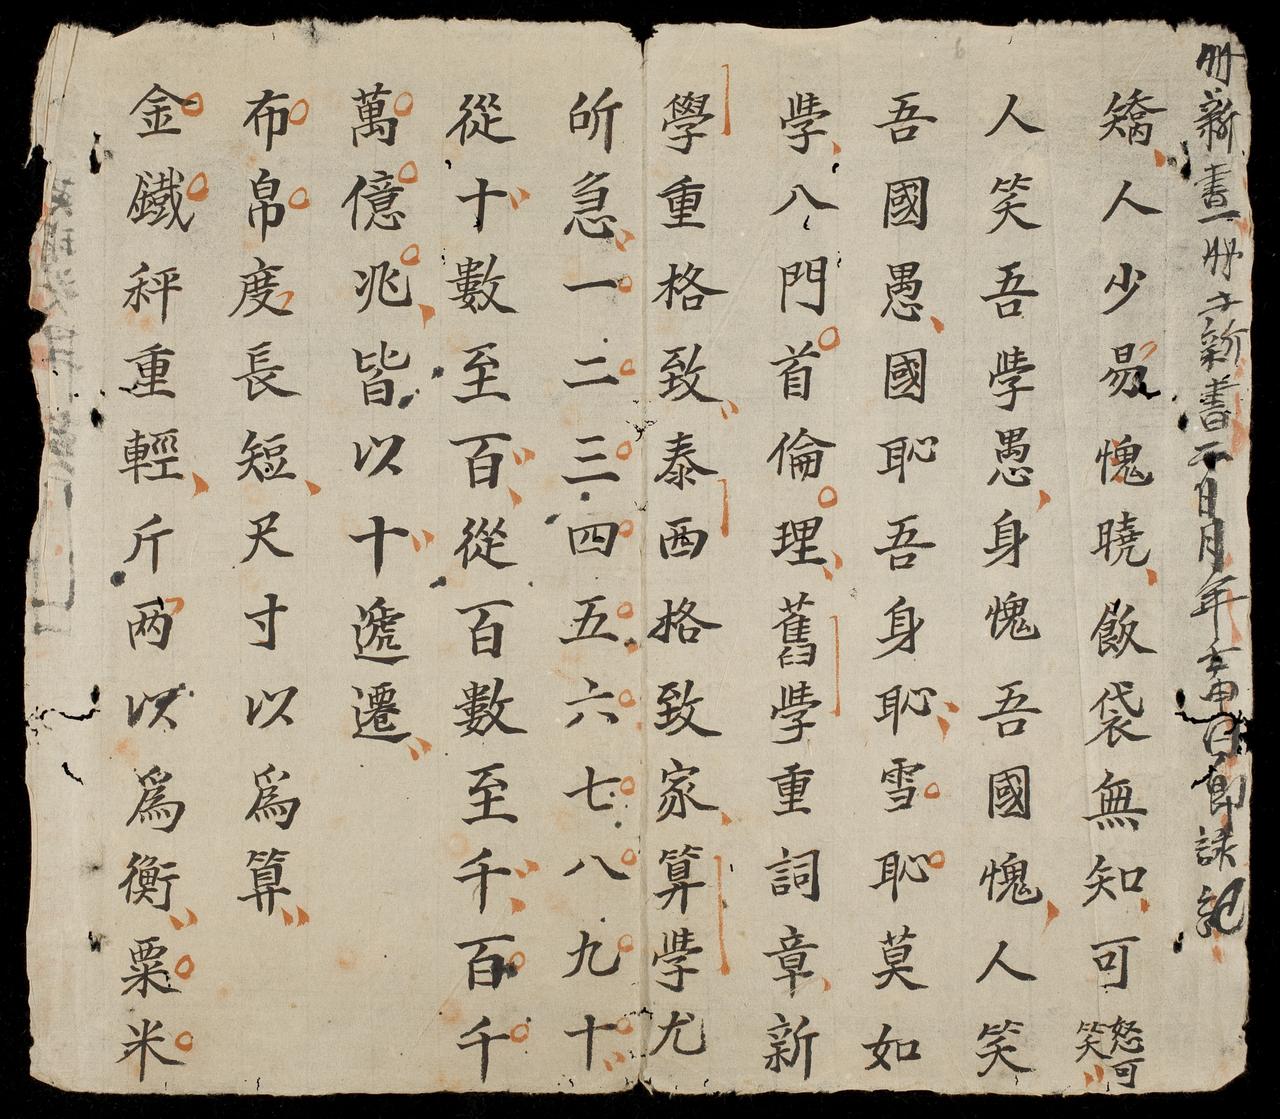 冊新書一冊士新書二日月年
矯人少易愧曉飯袋無知可怒可笑
人笑吾學愚身愧吾國愧人笑
吾國愚國恥吾身恥雪恥莫如
學八門首倫理舊學重詞章新
學重格致泰西格致家算學尤
所急一二三四五六七八九十
從十數至百從百數至千百千
萬億兆皆以十遞遷
布帛度長短尺寸以為算
金鐵秤重輕斤两以為衡粟米